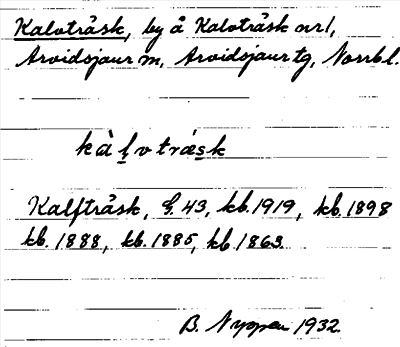 Kalvträsk, by å Kalvträsk nr 1,
Arvidsjaur m, Arvidsjaur tg, Norrb l.
kàḷvträsk
Kalfträsk, G. 43, kb. 1919, kb. 1898
kb. 1888, kb. 1885, kb 1863.
B. 1932.